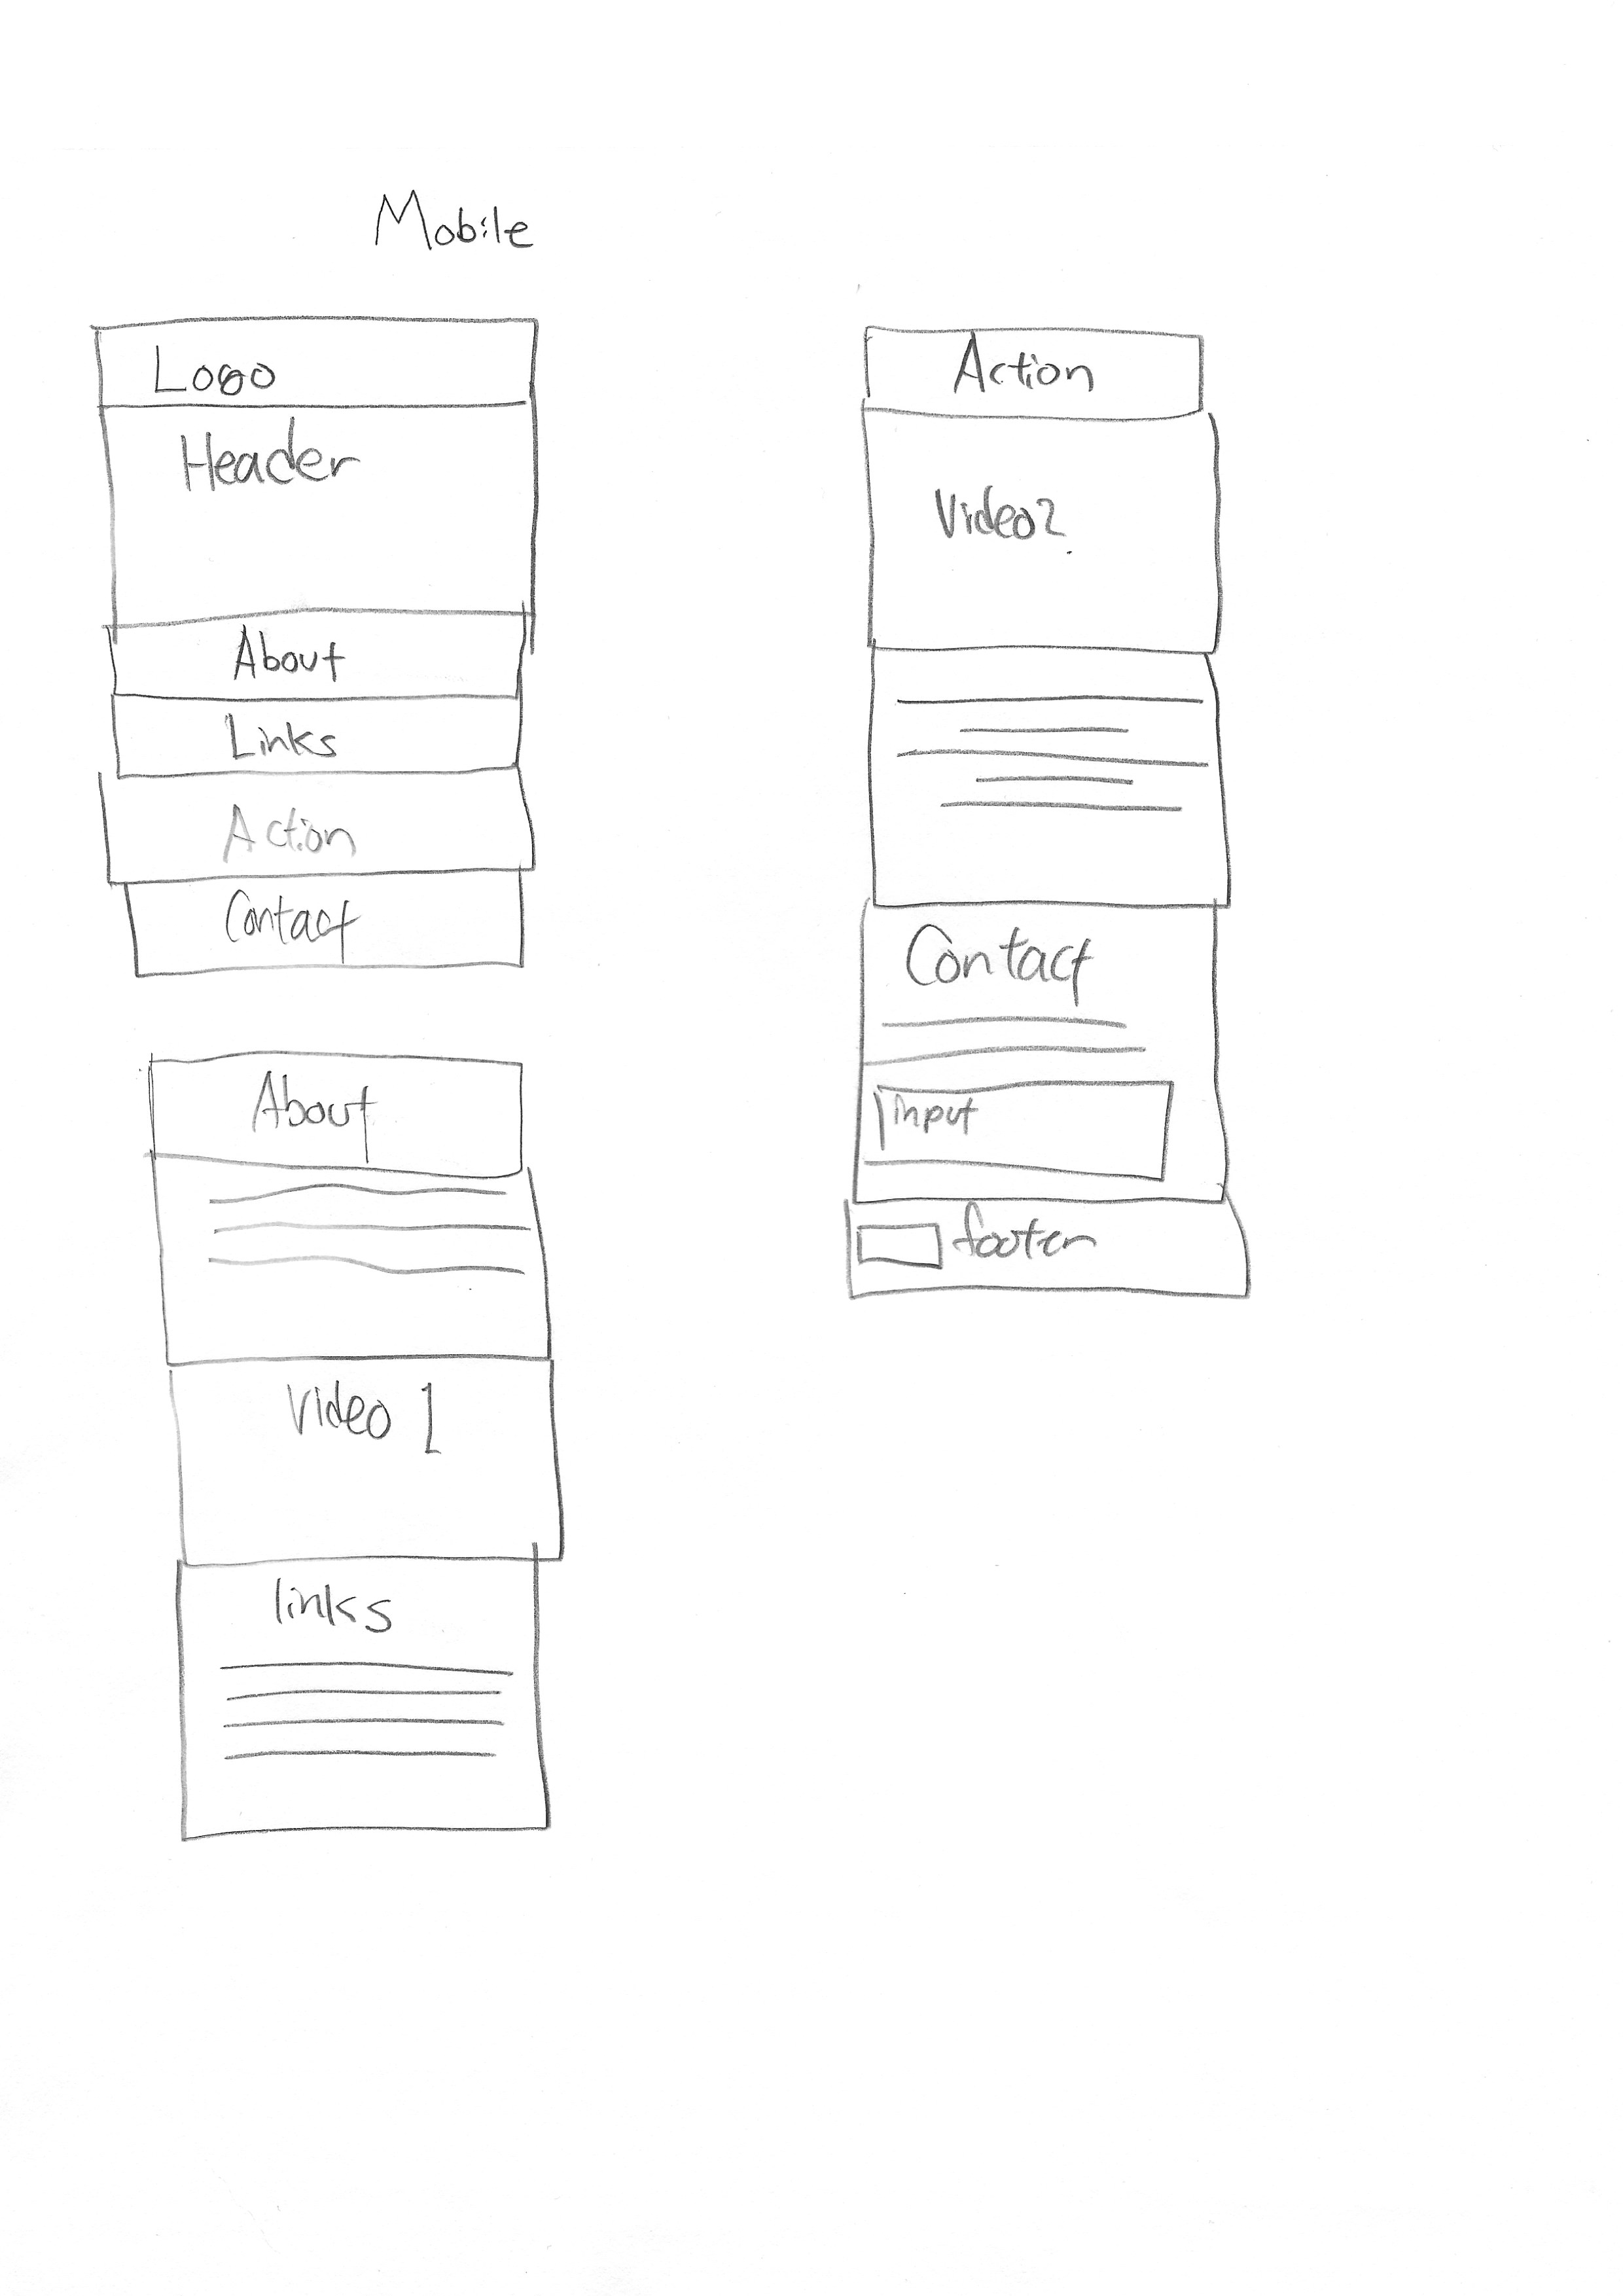 Mobile
Logo
Header
About
Links
Action
Contact
About
Video 1
links
Action
Video2
Contact
input
footer